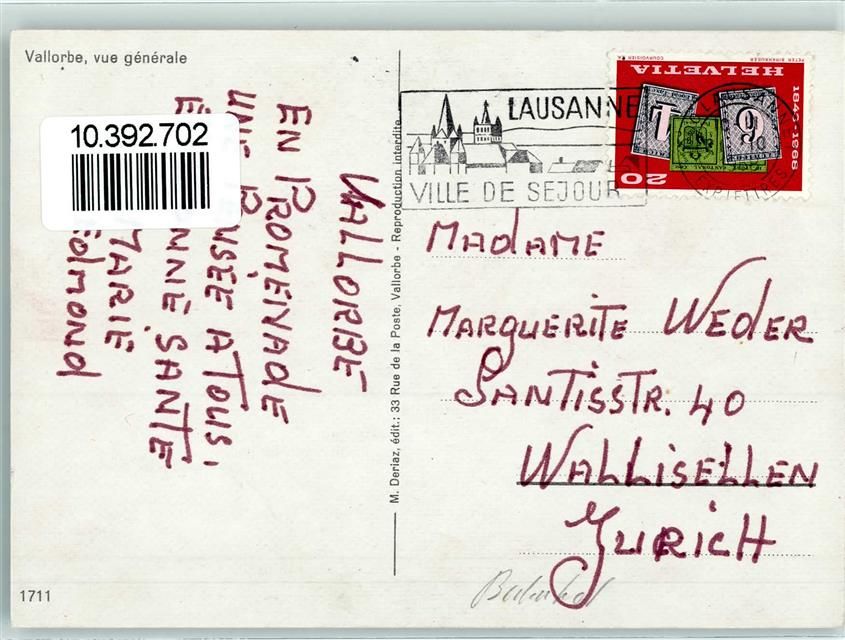 Vallorbe, vue générale
10.392.702
VALLORBE
EN PROMENADE
UNE PENSÉE A TOUS,
BONNE SANTE
MARIE
EdMONd
M. Deriaz, édit.: 33 Rue de la Poste, Vallorbe - Reproduction interdite
1711
LAUSANNE
VILLE DE SEJOUR
PETER BIRKHÄUSER
COURVOISIER S.A.
HELVETIA
1843-1968
20
MAdAME
MARGUERITE WEdER
SANTISSTR. 40
WALLISELLEN
ZURICH
Bahnhof